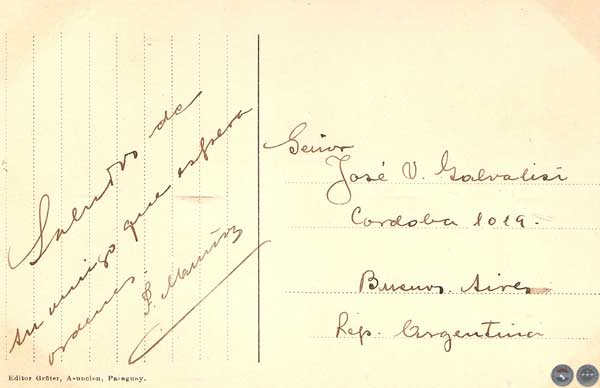 Saludos de
su amigo que espera
ordenes.
Señor
José V. Galvalisi
Cordoba 1019.
Buenos Aires
Rep. Argentina
Editor Grüter, Asuncion, Paraguay.